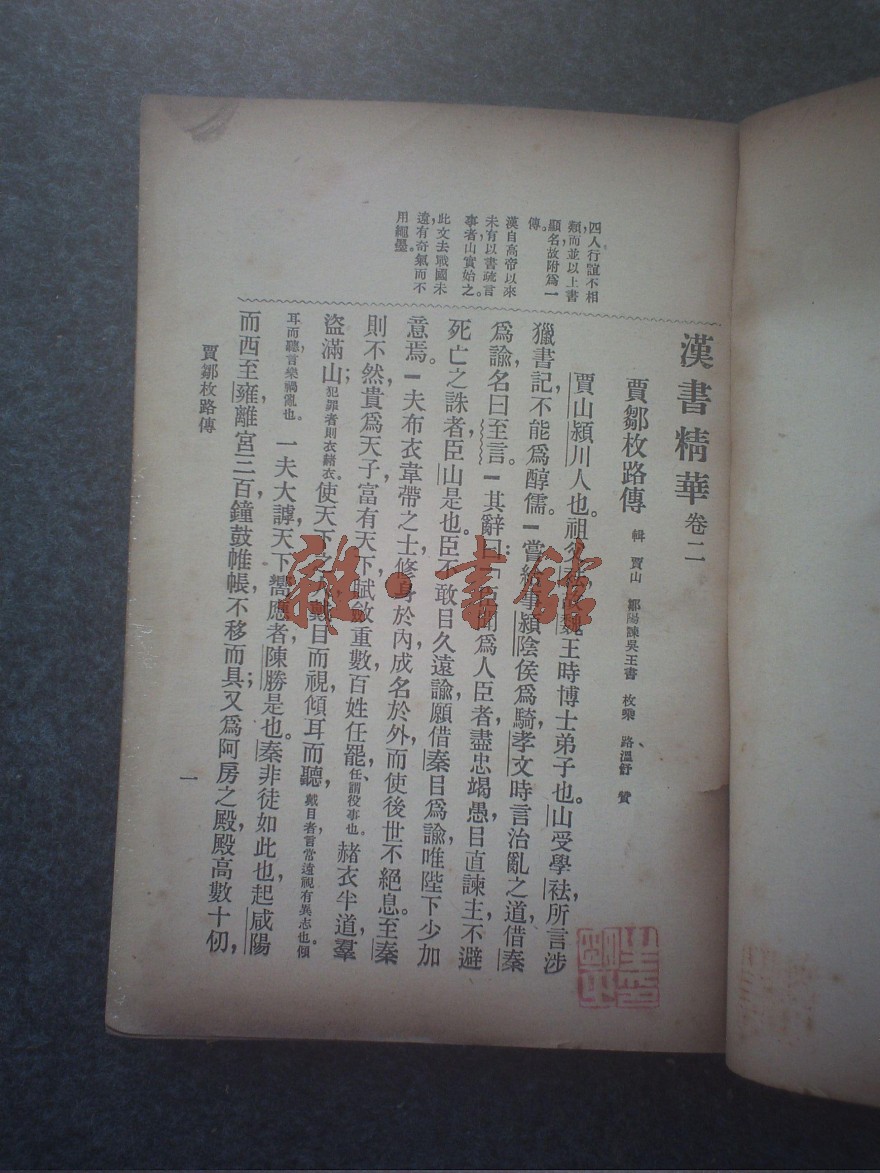 漢書精華 卷二
賈鄒枚路傳 輯 賈山 鄒陽諫吳王書 枚乘 路溫舒 贊
賈山，潁川人也。祖父 魏王時博士弟子也。山受學祛，所言涉
獵書記，不能爲醇儒。一嘗給事潁陰侯爲騎，孝文時，言治亂之道，借秦
爲諭，名曰至言。一其辭曰：「臣聞爲人臣者，盡忠竭愚，目直諫主，不避
死亡之誅者，臣山是也。臣不敢目久遠諭，願借秦目爲諭，唯陛下少加
意焉。一夫布衣韋帶之士，修身於內，成名於外，而使後世不絕息。至秦
則不然，貴爲天子，富有天下，賦斂重數，百姓任罷，任、謂役事也。赭衣半道，羣
盜滿山；犯罪者則衣赭衣。使天下之人，戴目而視，傾耳而聽，戴目者言常遠視有異志也。傾
耳而聽，言樂禍亂也。一夫大謼，天下嚮應者，陳勝是也。秦非徒如此也，起咸陽
而西至雍，離宮三百，鐘鼓帷帳，不移而具；又爲阿房之殿，殿高數十仞，
四人行誼不相
類，而並以上書
顯名，故附爲一
傳。
漢自高帝以來
未有以書疏言
事者，山實始之。
此文去戰國未
遠，有奇氣而不
用繩墨。
賈鄒枚路傳
一
雜·書館